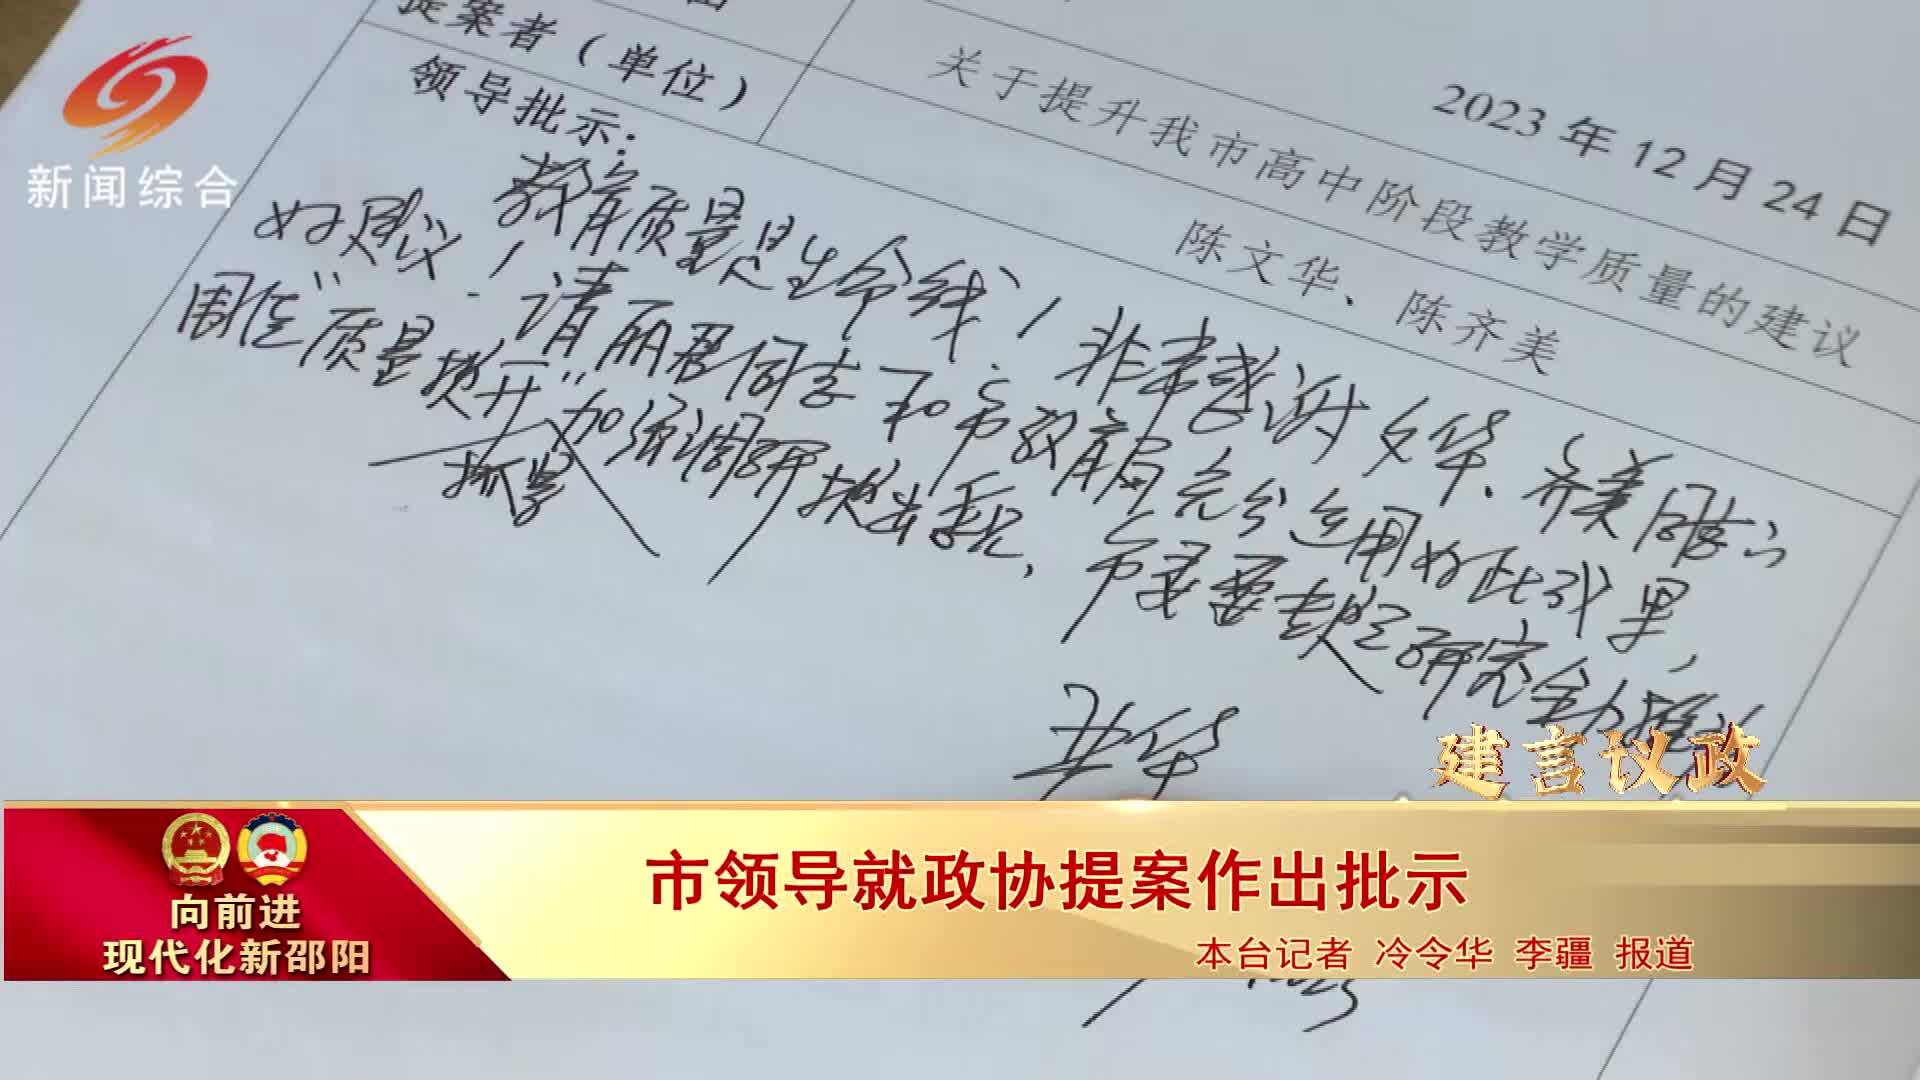 2023 年 12 月 24 日
关于提升我市高中阶段教学质量的建议
提案者（单位）
陈文华、陈齐美
领导批示：
教育质量是生命线！非常感谢文华、齐美同志
好建议！请丽君同志和市教育局充分运用好此成果，
围绕“质量提升”加强调研提出意见，市委要专题研究全力推动
抓紧
华
新闻综合
建言议政
市领导就政协提案作出批示
向前进
现代化新邵阳
本台记者 冷令华 李疆 报道